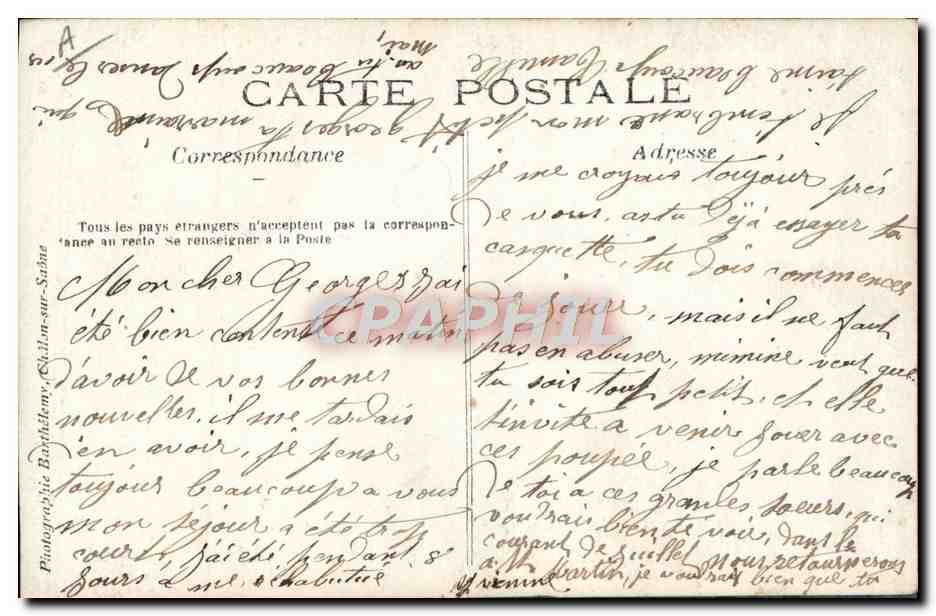 CARTE POSTALE
Correspondance
Adresse
Tous les pays etrangers n'acceptent pas la correspon-
dance au recto Se renseigner a la Poste
Photographie Barthélemy, Châlon-sur-Saône
CPAPHIL
Mon cher Georges j'ai
été bien contente ce matin
d'avoir de vos bonnes
nouvelles, il me tardais
d'en avoir, je pense
toujour beaucoup a vous
mon séjour a été trop
court, j'ai été pendant 8
jours a me réhabitué
je me croyais toujour près
de vous, as tu déjà essayer ta
casquette, tu dois commences
de jouer, mais il ne faut
pas en abuser, mimine veut que
tu sois tout petit, et elle
t'invite a venir jouer avec
ces poupée, je parle beaucoup
de toi a ces grandes sœurs, qui
voudrais bien te voir, dans le
courant de Juillet nous retournerons
a St Martin, je voudrais bien que tu
vienne
Je t'embrasse mon petit Georges ta marraine qui
t'aime beaucoup
as-tu beaucoup danser le
mai,